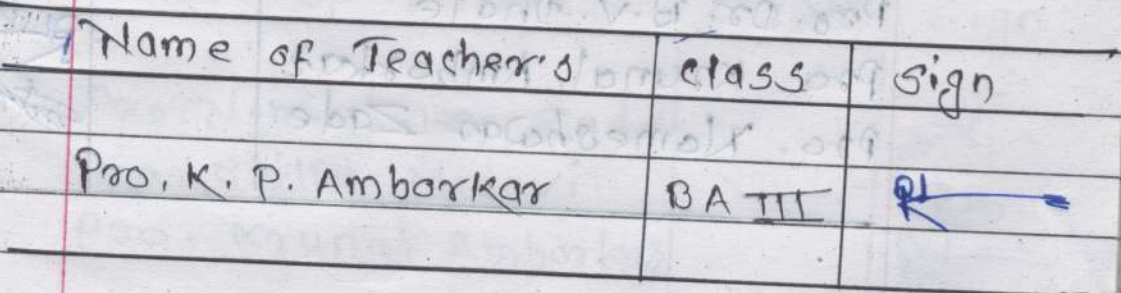 Name of Teacher's class sign
Pro. K. P. Amborkar BA III